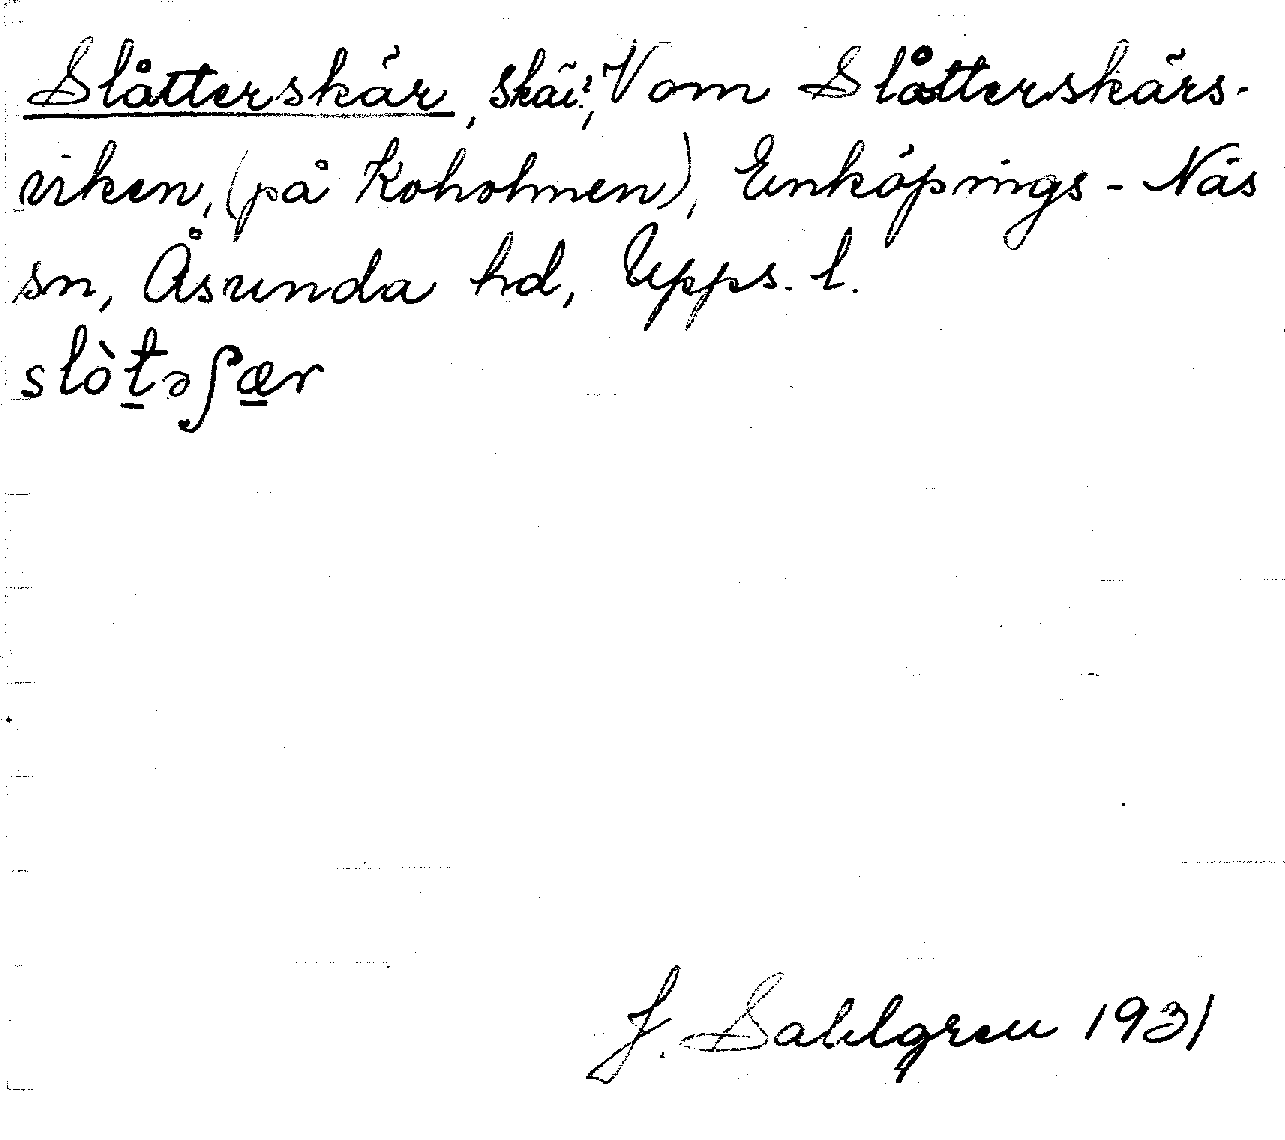 Slåtterskär, skär, V om Slåtterskärs-
viken, (på Koholmen), Enköpings-Näs
sn, Åsunda hd, Upps. l.
slòt̠əʃæ̠r
J. Sahlgren 1931